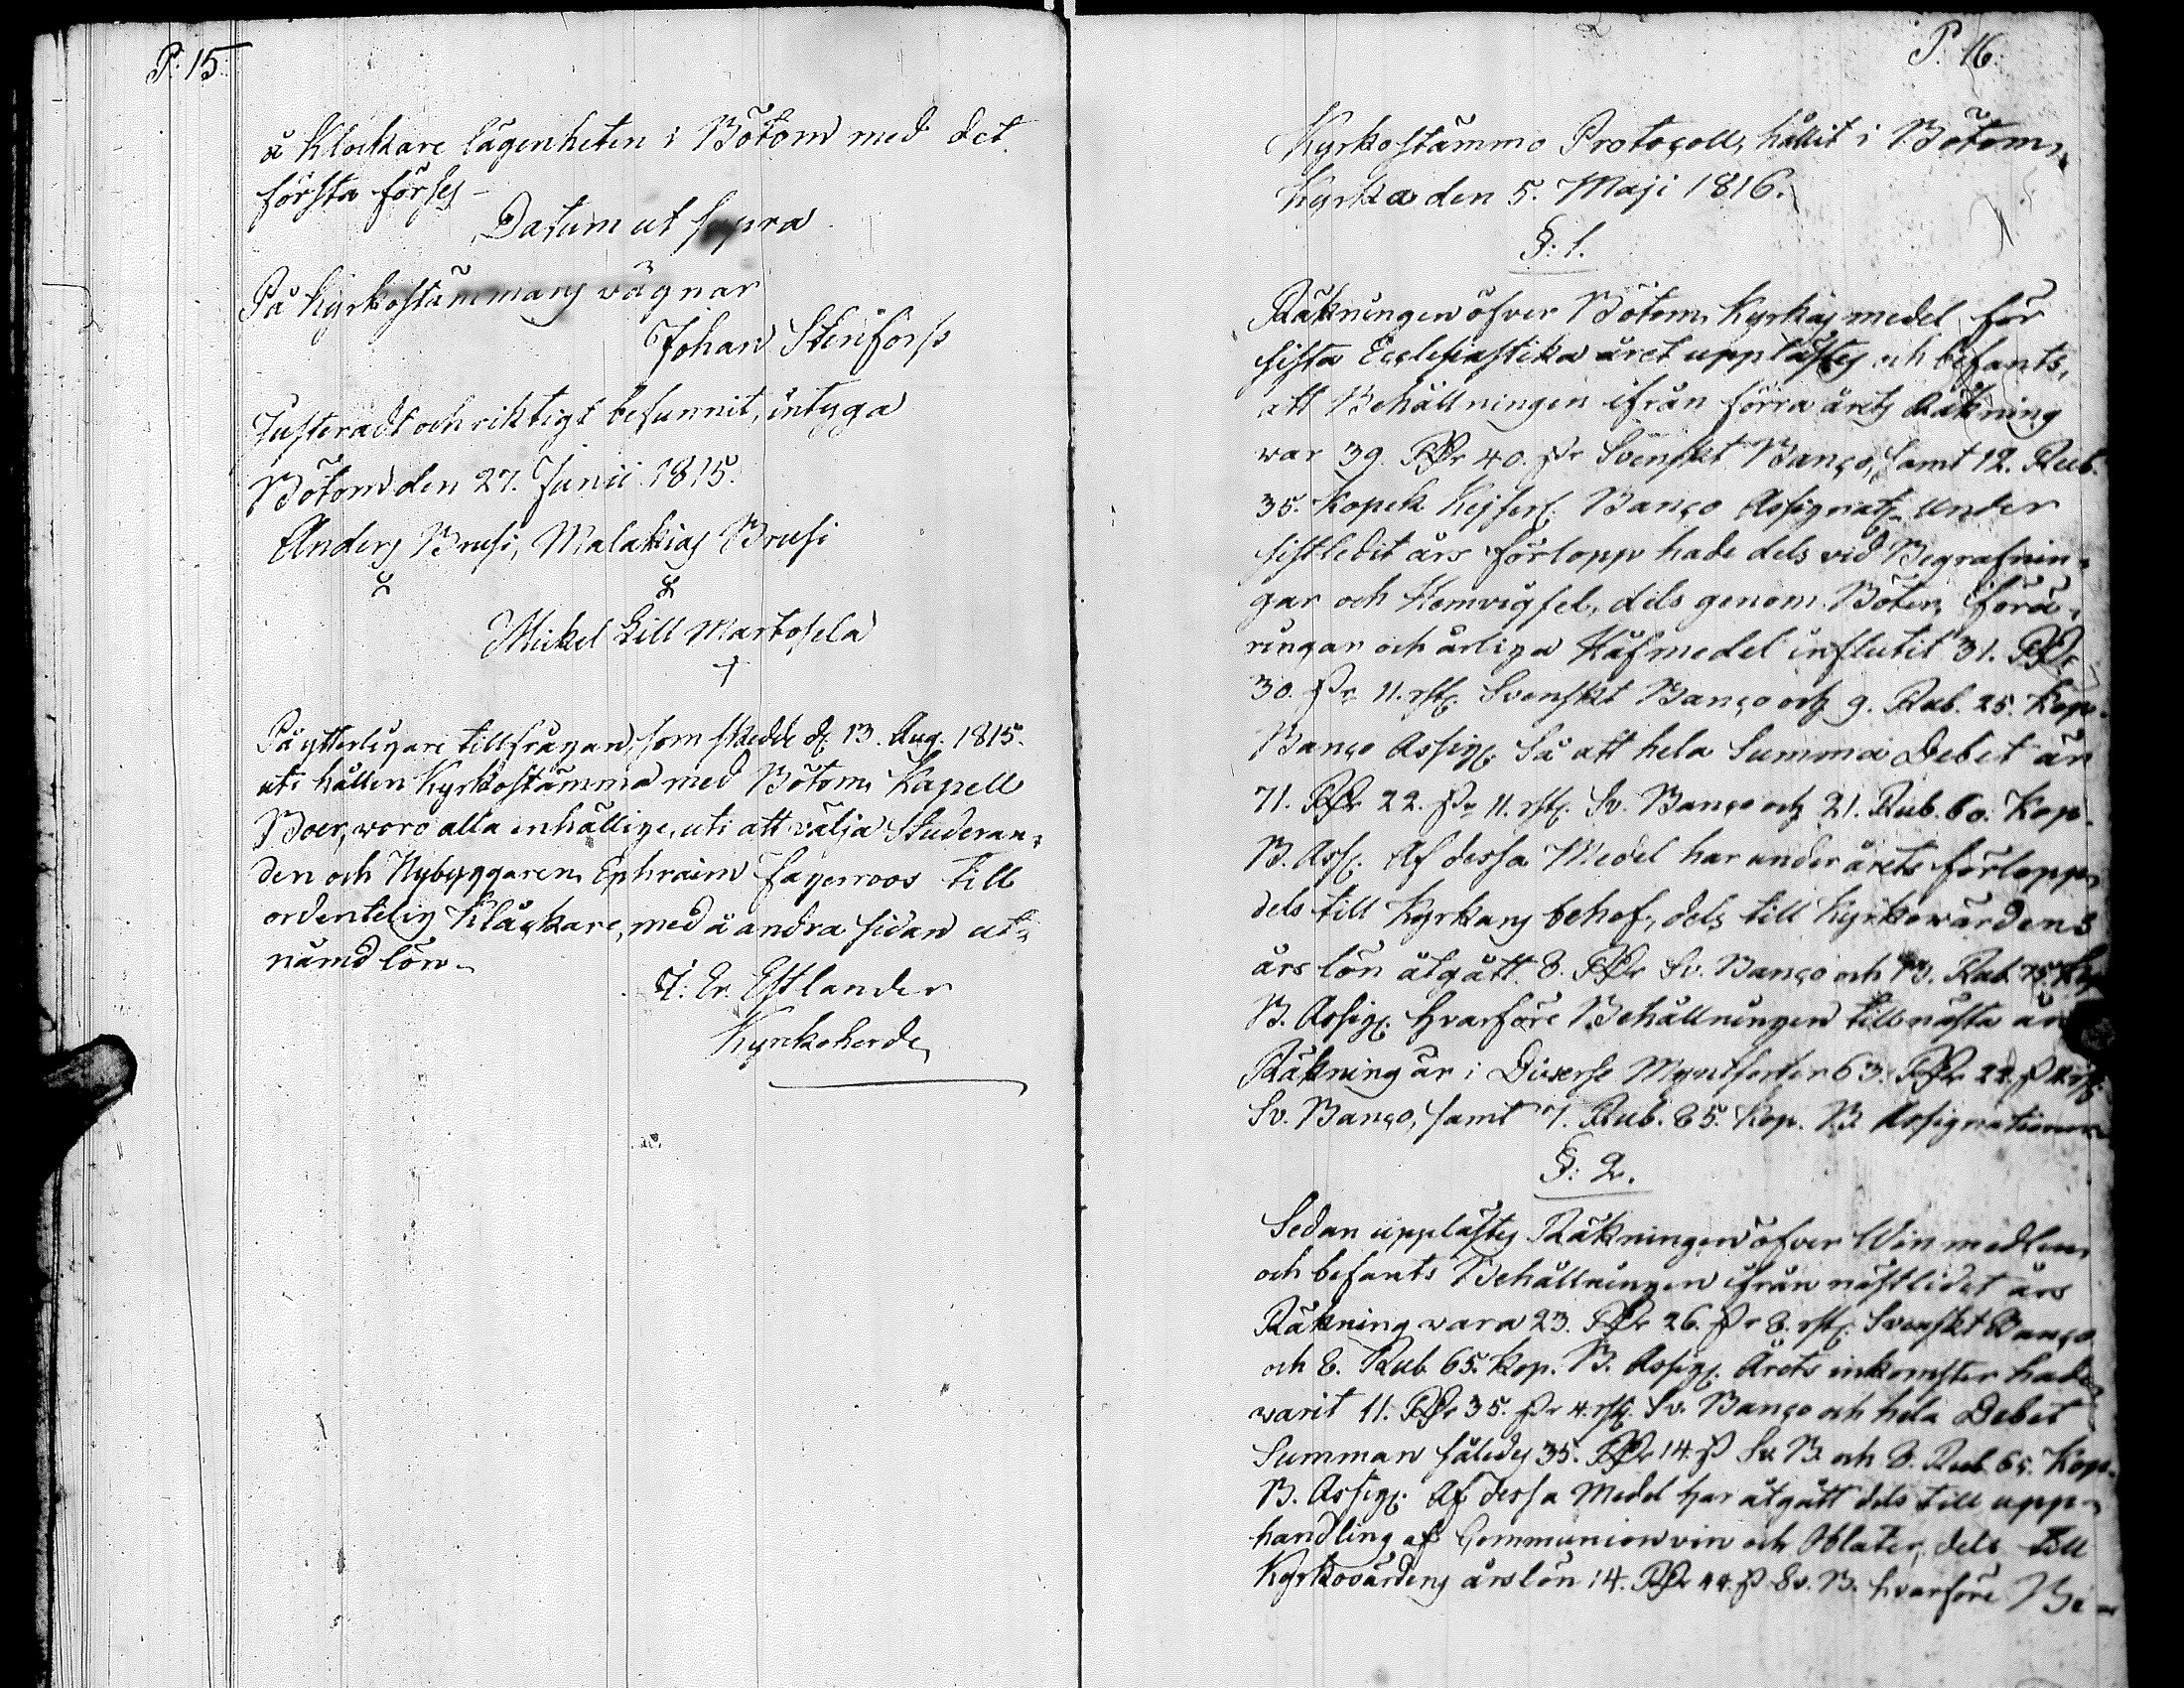 P. 15
å Klockare lägenheten i Bötom med det
första förses –
Datum ut supra
På Kyrkostämmans vägnar
Johan Stenforss
Justeradt och riktigt befunnit, intyga
Bötom den 27. Junii 1815.
Anders Brusi, Malakias Brusi
Mickel Lill Martosela
På ytterligare tillfrågan, som skedde d. 13. Aug. 1815.
uti hållen Kyrkostämma med Bötom Kapell
Boer, woro alla enhällige, uti att välja Studeran-
den och Nybyggaren Ephraim Fagerroos till
ordentelig Klåckare, med å andra sidan ut-
nämd lön.
J. Er. Estlander
Kyrkoherde
P. 16.
Kyrkostämmo Protocoll, hållit i Bötom
Kyrka den 5. Maji 1816.
§: 1.
Räkningen öfver Bötom Kyrkas medel för
sista Ecclesiastika året upplästes och befants,
att Behållningen ifrån förra årets Räkning
war 39. RDr 40. sr Svenskt Banco, samt 12. Rub.
35. Kopek Kejserl. Banco Assignat. Under
sistledit års förlopp hade dels vid Begrafnin-
gar och Hemvigsel, dels genom Böter, förä-
ringar och årliga Håfmedel influtit 31. RDr
30. sr 11. rst. Svenskt Banco och 9. Rub. 25. Kop.
Banco Assign. Så att hela Summa Debet är
71. RDr 22. sr 11. rst. Sv. Banco och 21. Rub. 60. Kop.
B. Ass. Af dessa Medel har under årets förlopp
dels till Kyrkans behof, dels till Kyrkowärdens
års lön åtgått 8. RDr Sv. Banco och 13. Rub. 75. Kop
B. Assign. Hvarföre Behållningen till nästa år
Räkning är i Diverse Myntsorter 63. RDr 22. s 11 rst.
Sv. Banco, samt 7. Rub. 85. Kop. B. Assignationer
§: 2.
Sedan upplästes Räkningen öfver Vin medlen,
och befants Behållningen ifrån nästlidet års
Räkning vara 23. RDr 26. sr 8. rst. Svenskt Banco
och 8. Rub 65. Kop. B. Assign. Årets inkomster hade
warit 11. RDr 35. sr 4. rst. Sv. Banco och hela Debet
Summan således 35. RDr 14. s Sv. B. och 8. Rub. 65. Kop.
B. Assign. Af dessa Medel har åtgått dels till upp-
handling af Communion vin och Oblater, dels till
Kyrkovärdens årslön 14. RDr 44. s Sv. B. hvarföre Be-